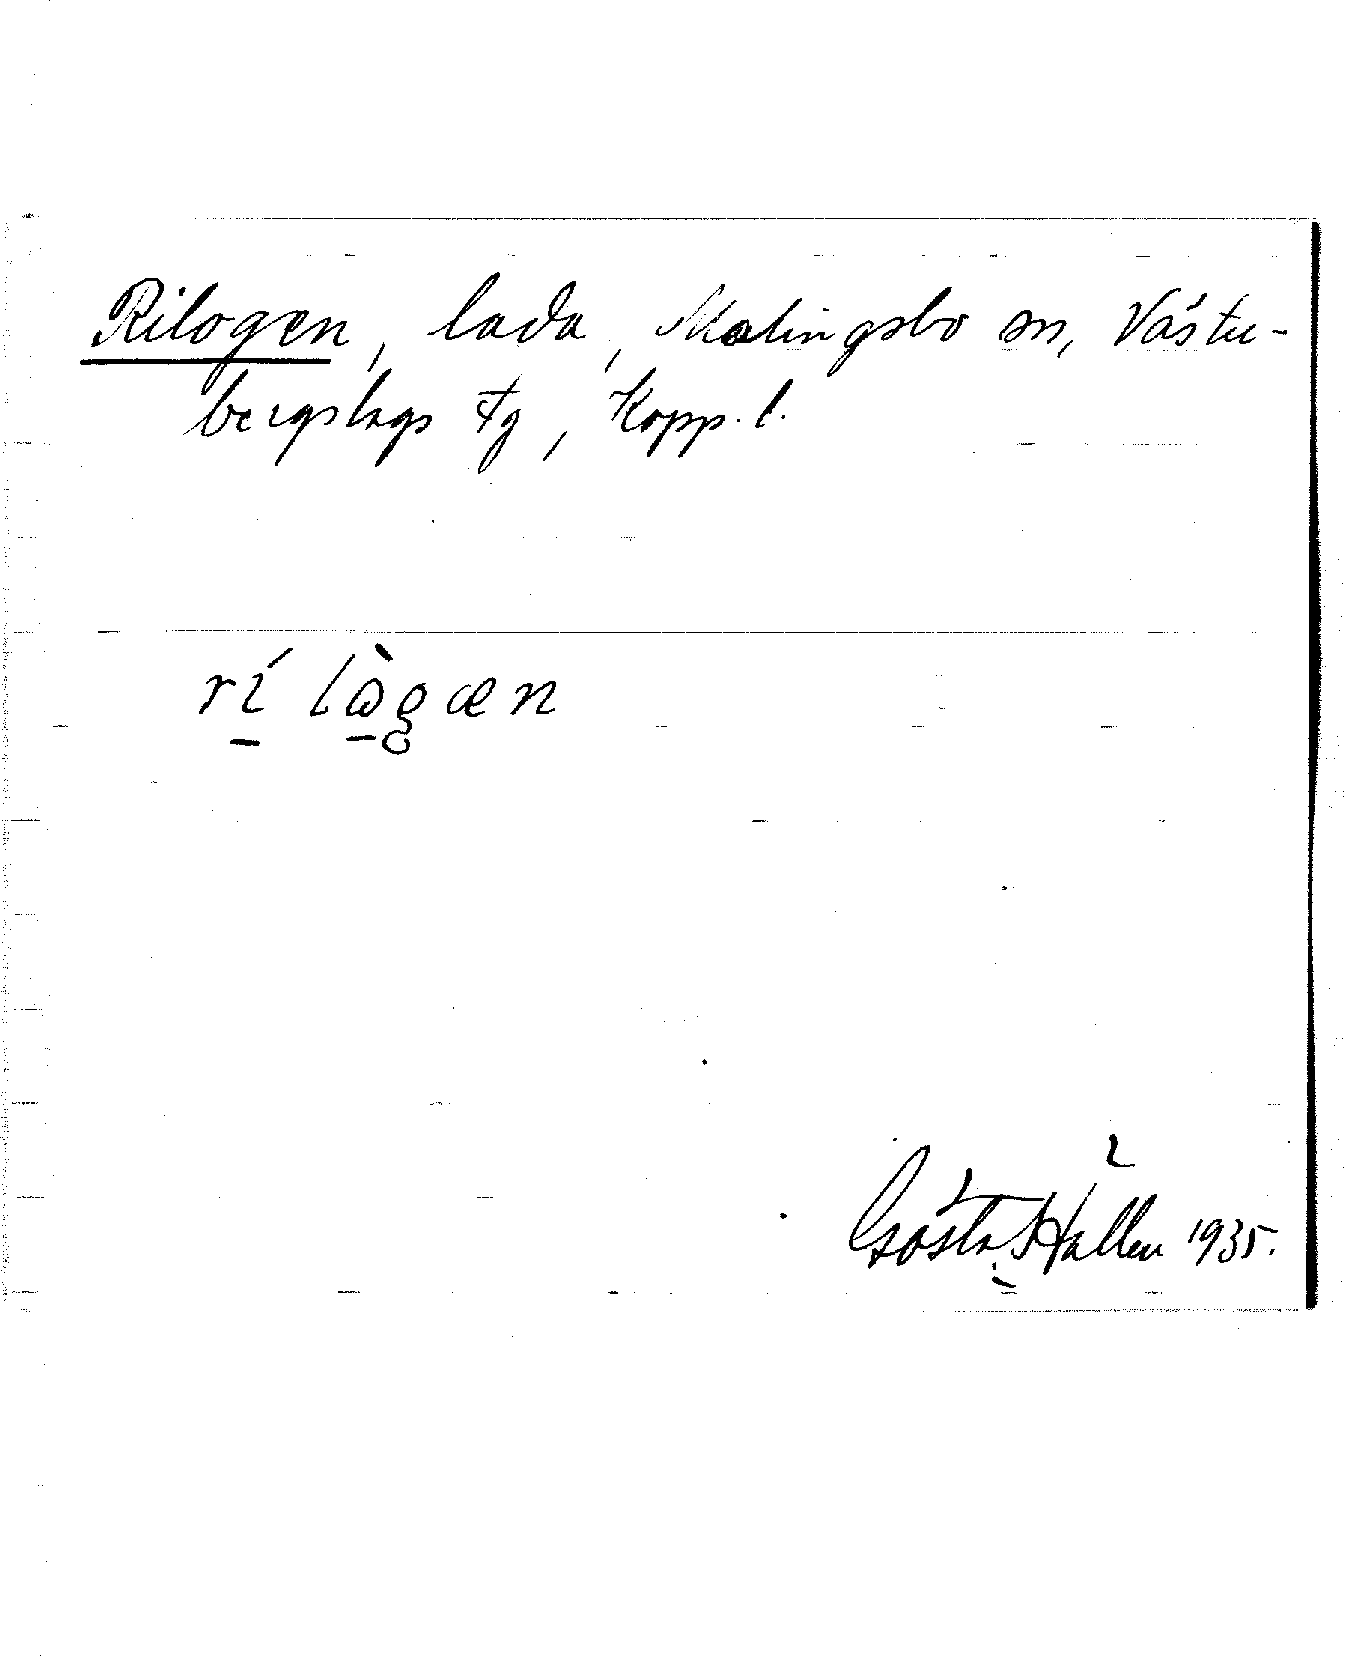 Rilogen, lada, Malingsbo sn, Väster-
bergslags tg, Kopp. l.
rí lὼgæn
Gösta Hallén 1935.